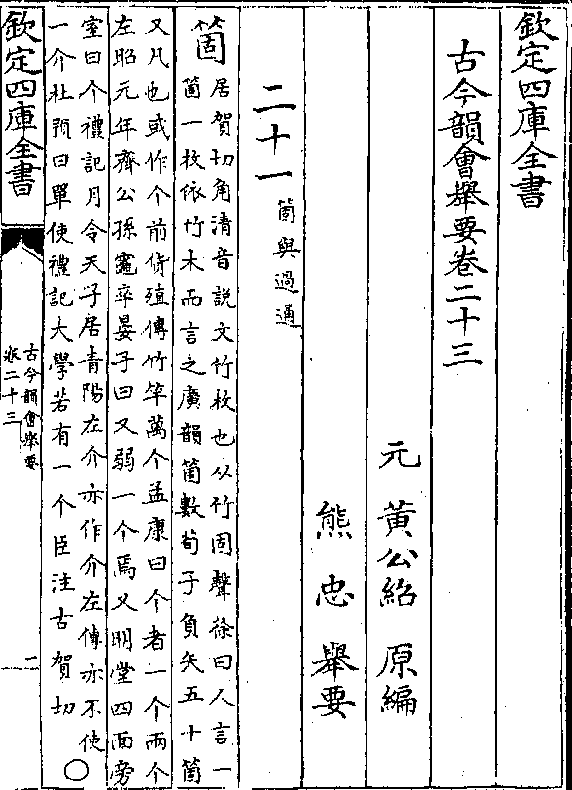 欽定四庫全書
古今韻會舉要卷二十三
元 黃公紹 原編
熊忠 舉要
二十一 箇與過通
箇 居賀切角清音說文竹枚也从竹固聲徐曰人言一
箇一枚依竹木而言之廣韻箇數荀子負矢五十箇
又凡也或作个前貨殖傳竹竿萬个孟康曰个者一个兩个
左昭元年齊公孫竈卒晏子曰又弱一个焉又明堂四面旁
室曰个禮記月令天子居青陽左介亦作介左傳亦不使
一介杜預曰單使禮記大學若有一个臣注古賀切○
欽定四庫全書
古今韻會舉要
卷二十三
一